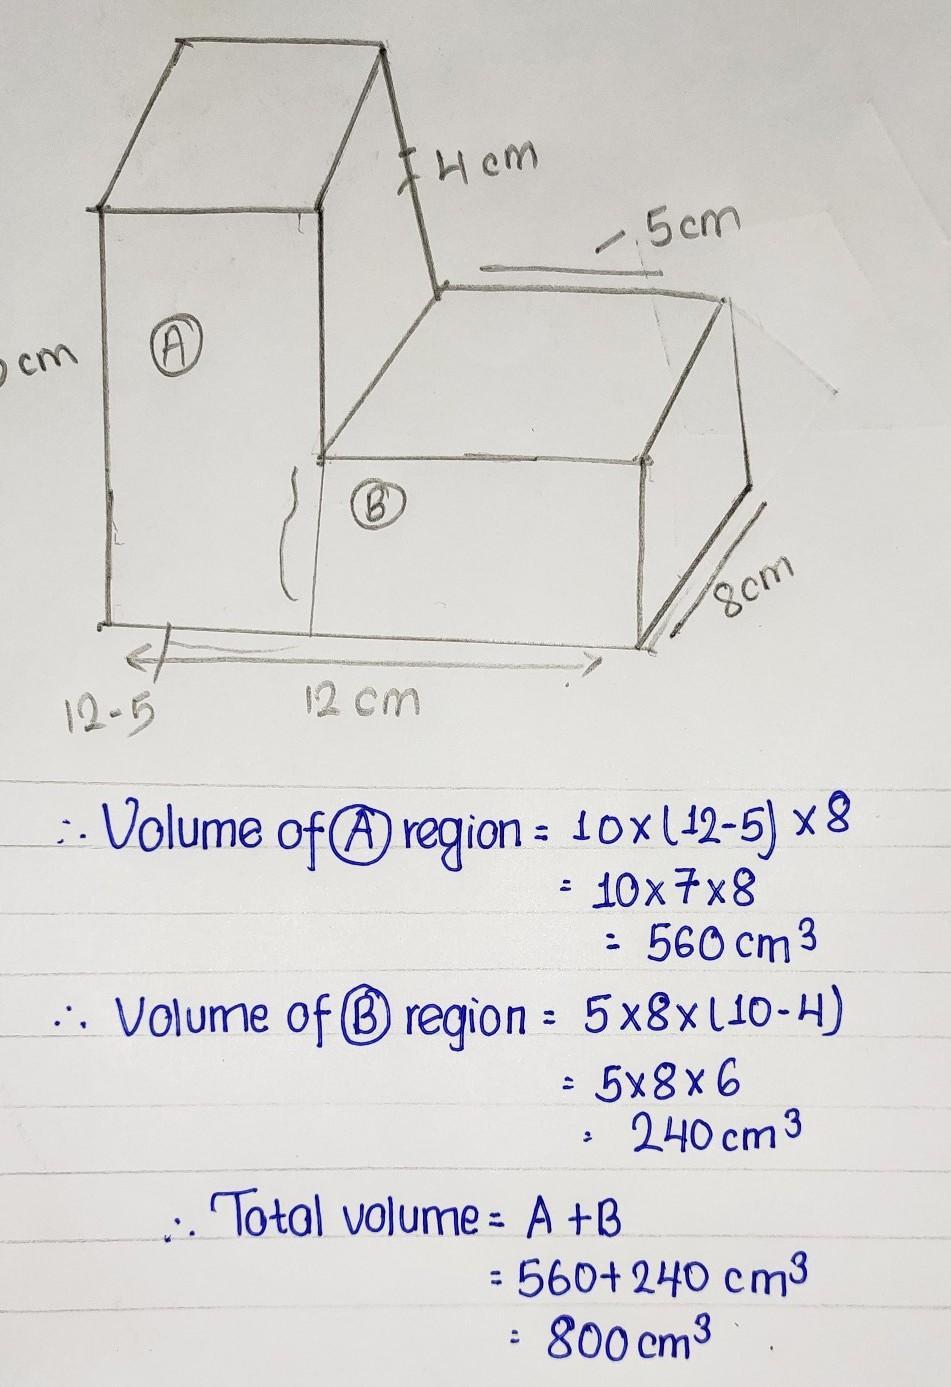 4 cm
5cm
cm
A
B
8cm
12-5
12 cm
∴ Volume of A region = 10x(12-5) x8
= 10x7x8
= 560 cm³
∴ Volume of B region = 5x8x(10-4)
= 5x8x6
= 240 cm³
∴ Total volume = A+B
= 560+240 cm³
= 800 cm³